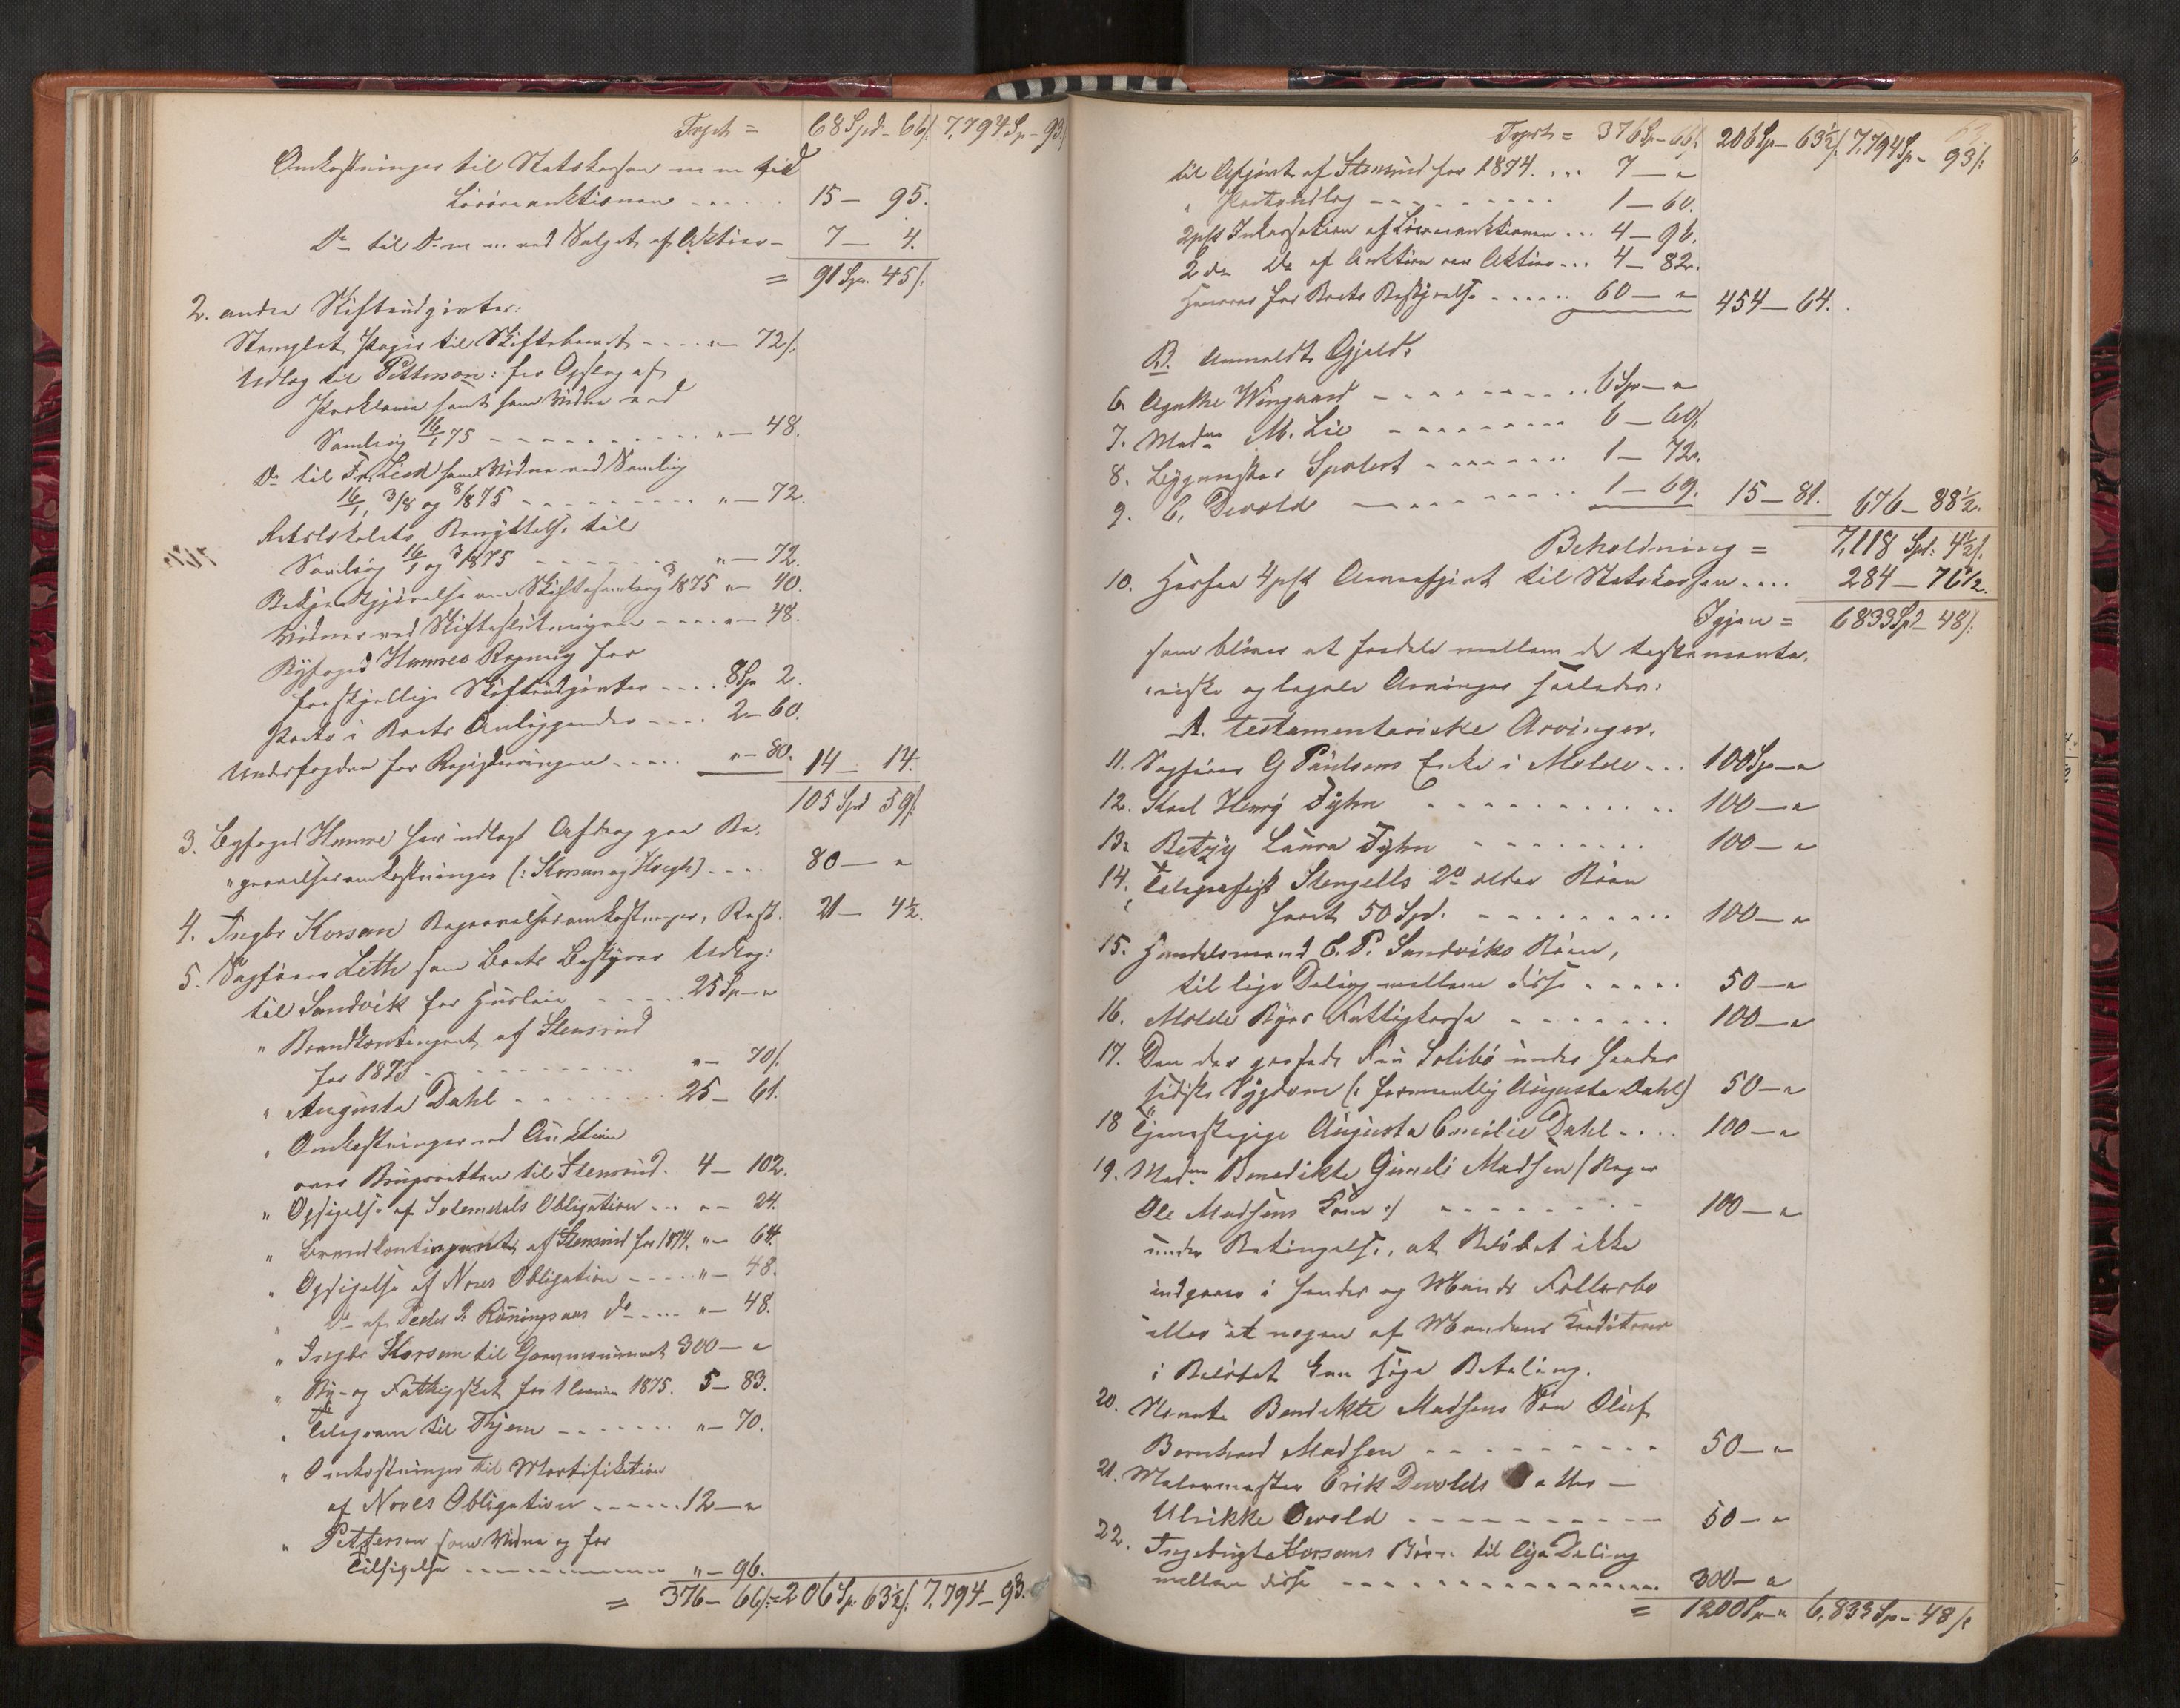 Trpt = 68 Spd - 66 s. 7,794 Sp - 93 s.
Omkostninger til Statskassen m m ved
Løsøreauktionen - - - - 15 - 95.
Do til Do m m ved Salget af Aktier - 7 - 4.
= 91 Sp. 45 s.
2. andre Skifteudgivter:
Stemplet Papir til Skiftebrevet - - - - " - 72 s.
Udlæg til Pettersson: for Opslag af
Proklama samt som Vidne ved
Samling 16/1 75 - - - - - - - - - - " - 48.
Do til Fr. Lied som Vidne ved Samling
16/1, 3/8 og 8/8 75 - - - - - - - - " - 72.
Retslokalets Benyttelse til
Samling 16/1 og 3/8 75 - - - - - - " - 72.
Bekjendtgjørelse om Skiftesamling 3/8 1875 " - 40.
Vidner ved Skifteslutningen - - - - " - 48.
Byfoged Hammes Regning for
forskjellige Skifteudgivter - - - - 8 Sp 2.
Porto i Boets Anliggender - - - - 2 - 60.
Underfogden for Registreringen - - - - " - 80. 14 - 14.
105 Spd 59 s.
3. Byfoged Hamme har udlagt Afdrag paa Be-
" gravelsesomkostninger (: Korsan og Krogh) - - - - 80 - "
4. Ingbr Korsan Begravelsesomkostninger, Rest. 21 - 4½.
5. Sagfører Leth som Boets Bestyrer Udlæg:
til Sandvik for Husleie - - - - - 25 Sp - "
" Brandkontingent af Stensrud
for 1875 - - - - - - - - - - " - 70 s.
" Augusta Dahl - - - - - - - - 25 - 61.
" Omkostninger ved Auktion
over Brugsretten til Stensrud. 4 - 102.
" Opsigelse af Solemdals Obligation - - - " - 24.
" Brandkontingent af Stensrud for 1874. " - 64.
" Opsigelse af Noves Obligation - - - - - " - 48.
" Do af Peder P. Rønningsaas do - - - - " - 48.
" Ingbr Korsan til Gravmonument 300 - "
" By- og Fattigskat for 1 Termin 1875. 5 - 83.
" Telegram til Thjem - - - - - - " - 70.
" Omkostninger til Mortifikation
af Noves Obligation - - - - - 12 - "
" Pettersen som Vidne og for
Tilsigelse - - - - - - - - - - " - 96.
= 376 - 66 s. = 206 Sp. 63½ s. 7,794 - 93.
Trprt = 376 Sp - 66 s. 206 Sp - 63½ s. 7,794 Sp - 93 s.
til Afgivt af Stensrud for 1874. . . . 7 - "
" Portoudlæg - - - - - - - - - 1 - 60.
2 pCt Inkassation af Løsøreauktionen . . . 4 - 96.
2 do Do af Auktion over Aktier . . . 4 - 82.
Honorar for Boets Bestyrelse - - - - - 60 - " 454 - 64.
B. Anmeldt Gjæld:
6. Agathe Wingaard - - - - - - - - - 6 Sp - "
7. Madme M. Lie - - - - - - - - - 6 - 60 s.
8. Lygmester Spolert - - - - - - - 1 - 72.
9. C. Devold - - - - - - - - - - 1 - 69. 15 - 81. 676 - 88½.
Beholdning = 7,118 Spd. 4½ s.
10. Heraf 4 pCt Arveafgivt til Statskassen. . . . 284 - 76½.
Igjen = 6833 Spd - 48 s.
som bliver at fordele mellem de testamenta-
riske og legale Arvinger saaledes:
A. testamentariske Arvinger.
11. Sagfører G Paulsens Enke i Molde - - - 100 Sp - "
12. Karl Henry Fyhn - - - - - - - - - - - 100 - "
13. Betzy Laura Fyhn - - - - - - - - 100 - "
14. Telegrafist Stengells 2de ældre Børn
hvert 50 Spd. - - - - - - - - - 100 - "
15. Handelsmand C. P. Sandviks Børn,
til lige Deling mellem disse - - - - - 50 - "
16. Molde Byes Fattigkasse - - - - - - - 100 - "
17. Den der passede Fru Solibø under hendes
sidste Sygdom (: formentlig Augusta Dahl) 50 - "
18 Tjenestepige Augusta Emilie Dahl - - - - 100 - "
19. Madme Benedikte Gimeli Madsen (Bager
Ole Madsens Kone :) - - - - - - - - - 100 - "
under Betingelse, at Beløbet ikke
indgaaer i hendes og Mands Fællesbo
eller at nogen af Mandens Kreditorer
i Beløbet kan søge Betaling.
20. Nævnte Bendikte Madsens Søn Oluf
Bernhard Madsen - - - - - - - - - 50 - "
21. Malermester Erik Devolds Datter -
Ulrikke Devold - - - - - - - - - - 50 - "
22. Ingebrigt Korsans Børn til lige Deling
mellem disse - - - - - - - - - - - - 300 - "
= 1200 Sp - " 6,833 Sp - 48 s.